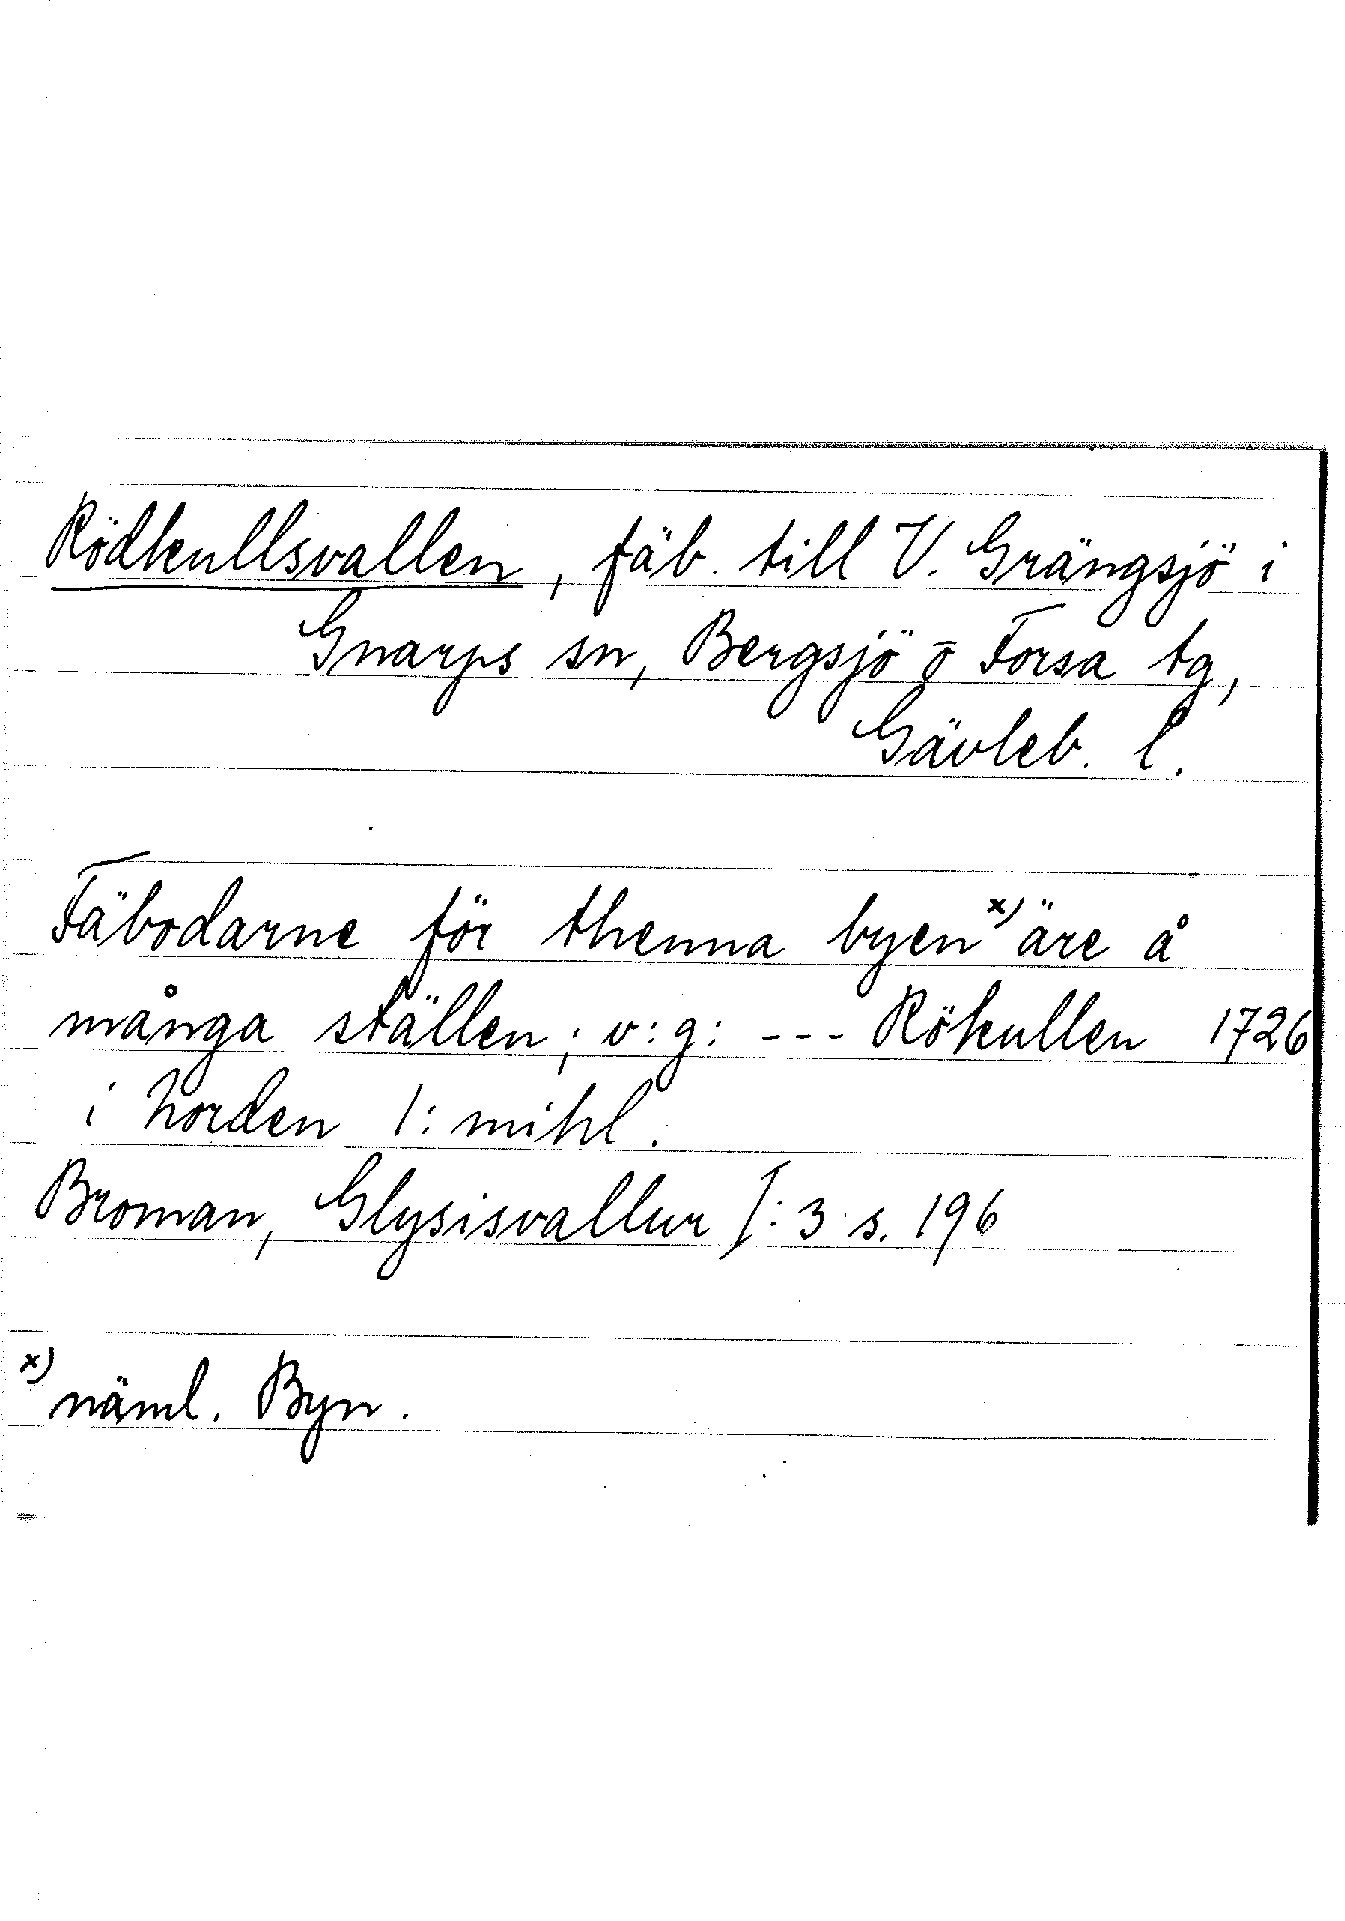 Rödkullsvallen, fäb. till V. Grängsjö i
Gnarps sn, Bergsjö o Forsa tg,
Gävleb. l.
Fäbodarne för thenna byen x) äre å
många ställen; v:g: --- Rökullen 1726
i norden 1: mihl.
Broman, Glysisvallur I:3 s. 196
x) näml. Byn.